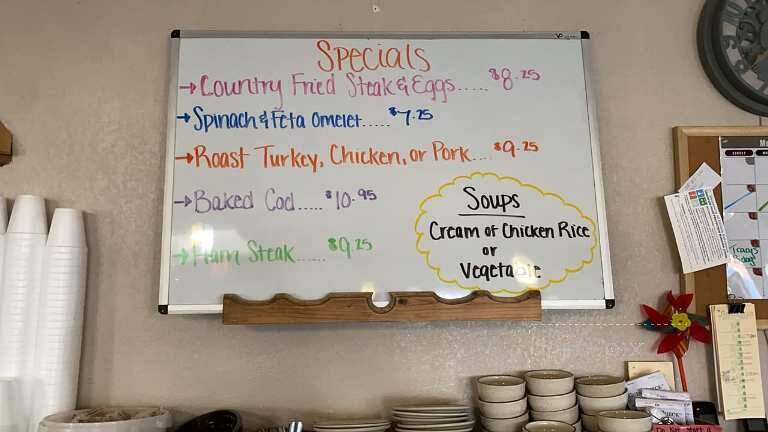 Specials
→Country Fried Steak & Eggs..... $8.25
→Spinach & Feta Omelet..... $7.25
→Roast Turkey, Chicken, or Pork.... $9.25
→Baked Cod..... $10.95
→Ham Steak...... $9.25
Soups
Cream of Chicken Rice
or
Vegetable